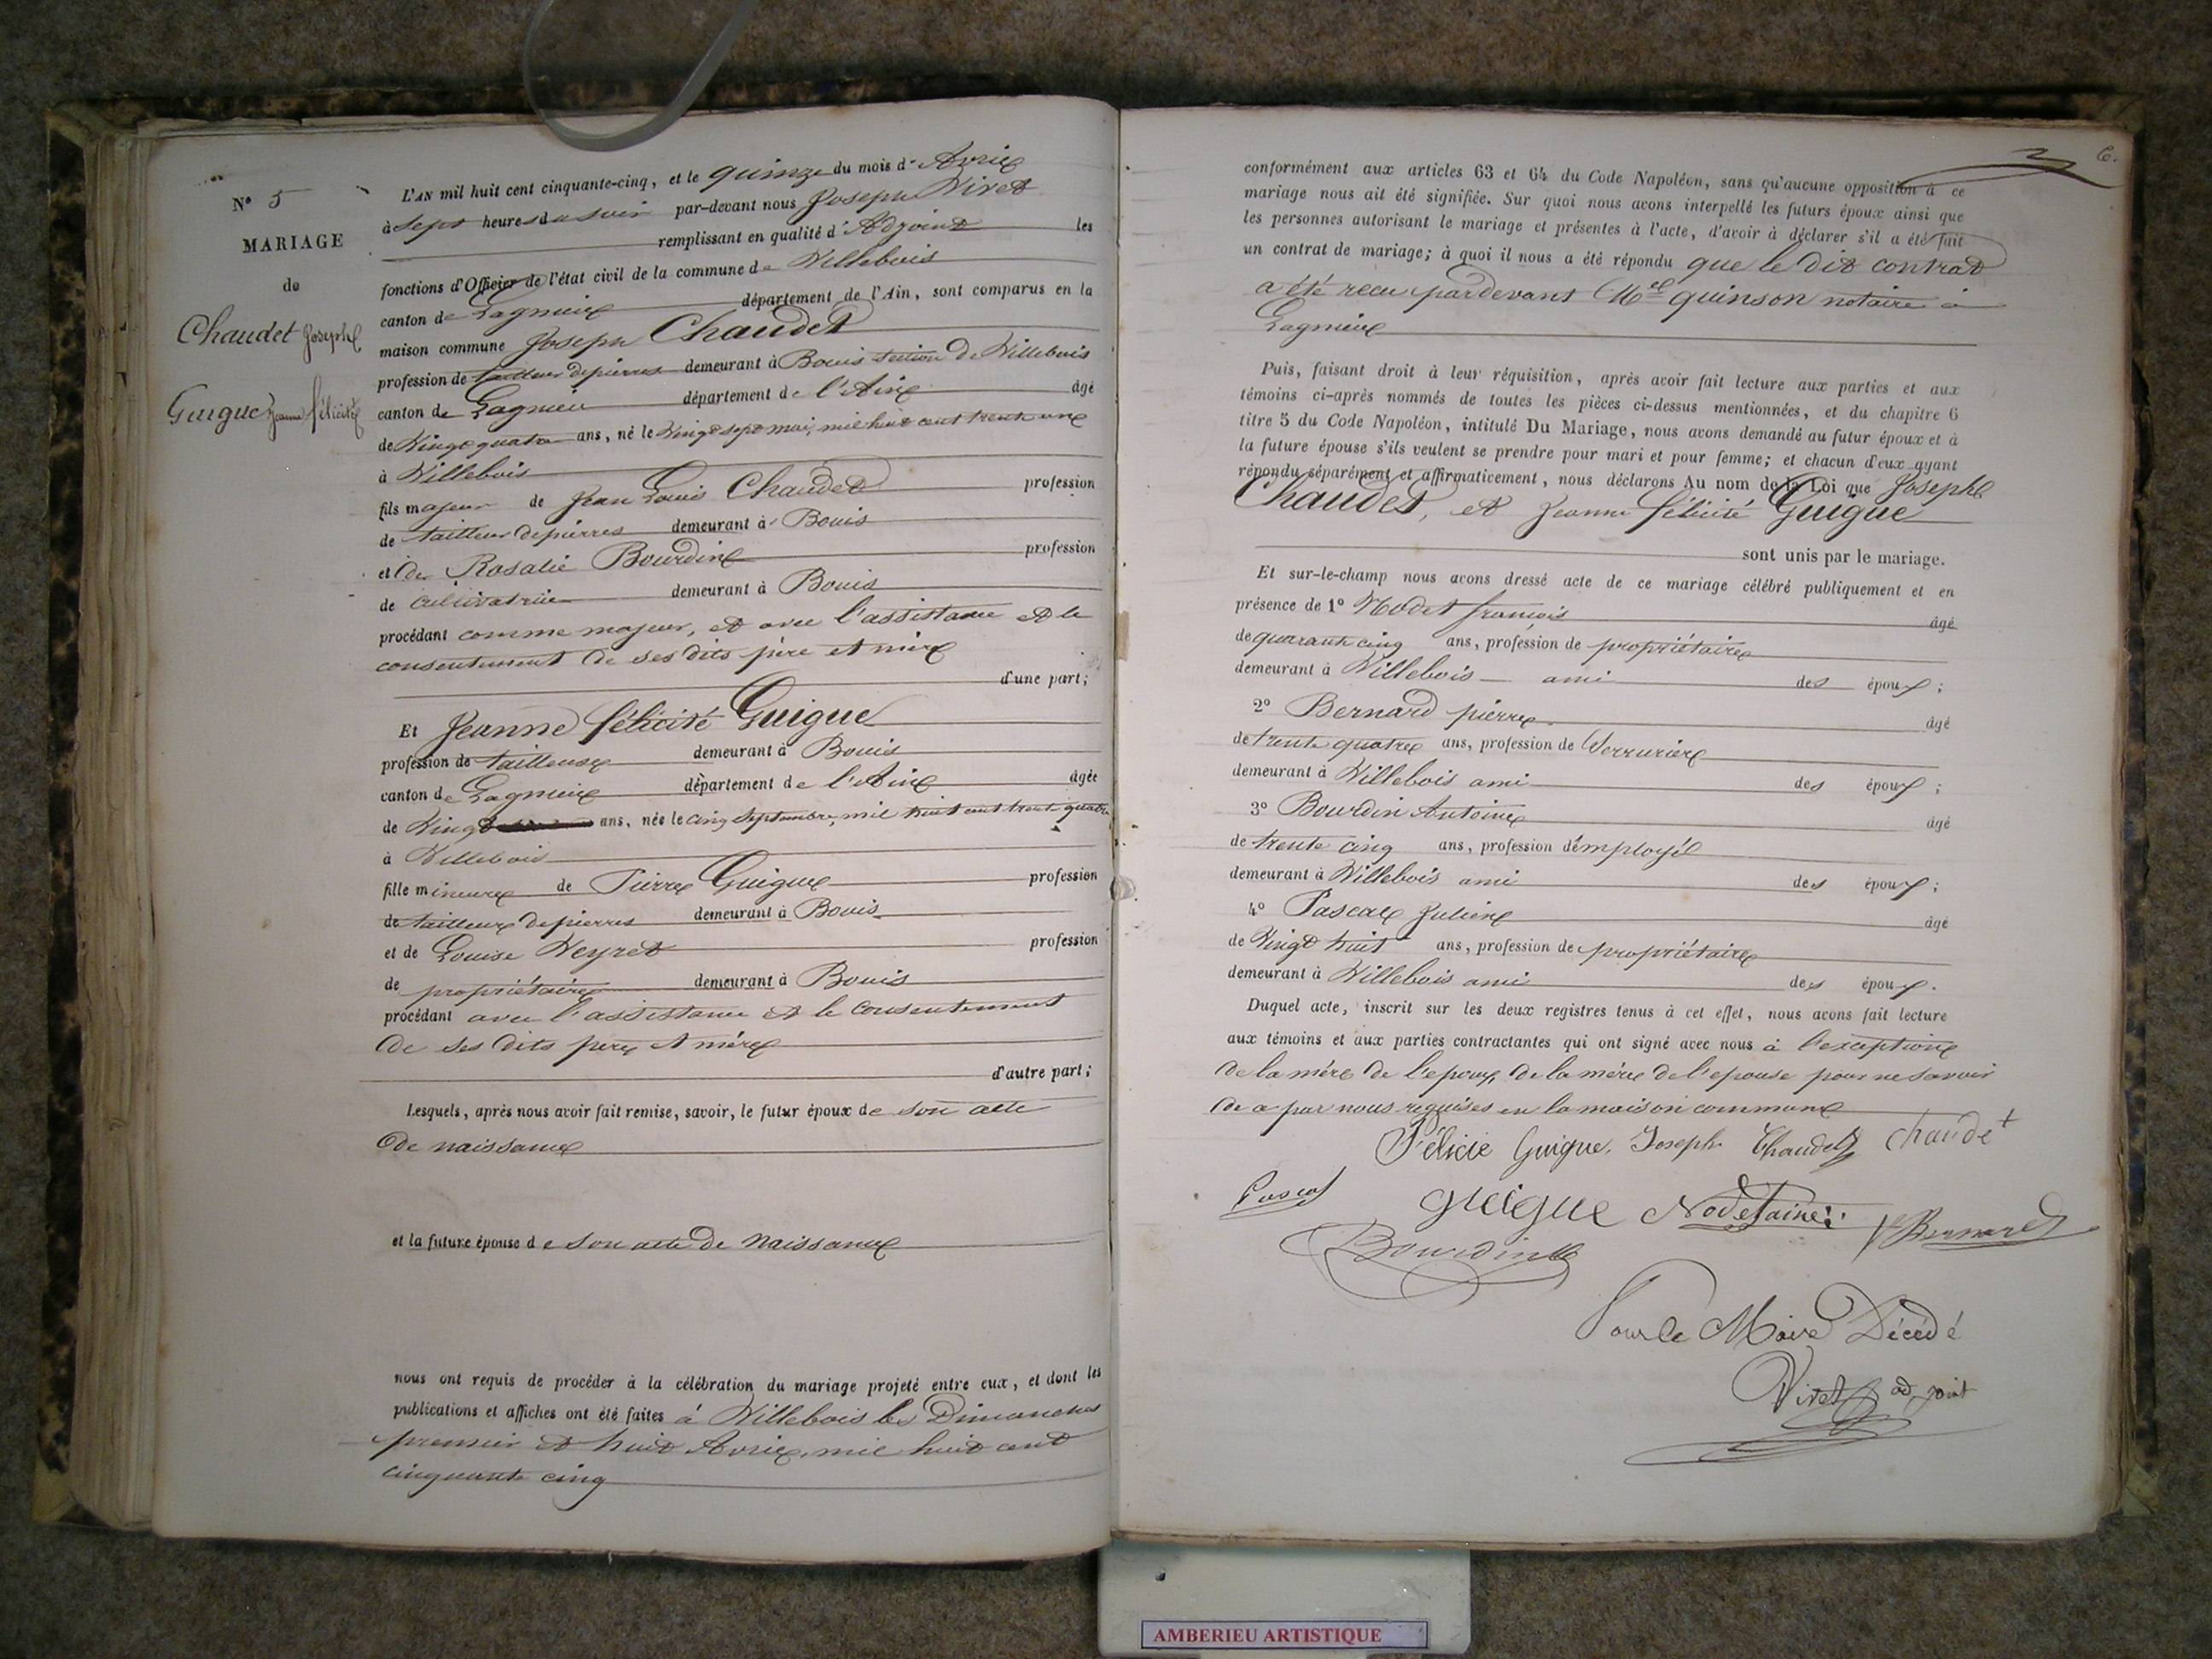 N° 5
MARIAGE
de
Chaudet Joseph
Guigue Jeanne félicité
L'AN mil huit cent cinquante-cinq, et le quinze du mois d'Avril
à Sept heures du soir par-devant nous Joseph Viret
remplissant en qualité d'Adjoint les
fonctions d'Officier de l'état civil de la commune de Villebois
canton de Lagnieu département de l'Ain, sont comparus en la
maison commune Joseph Chaudet
profession de tailleur de pierres demeurant à Bouis section de Villebois
canton de Lagnieu département de l'Ain âgé
de Vingt quatre ans, né le Vingt sept mai, mil huit cent trente un
à Villebois
fils majeur de Jean Louis Chaudet profession
de tailleur de pierres demeurant à Bouis
et de Rosalie Bourdin profession
de cultivatrice demeurant à Bouis
procédant comme majeur, et avec l'assistance et le
consentement de ses dits père et mère
d'une part;
Et Jeanne félicité Guigue
profession de tailleuse demeurant à Bouis
canton de Lagnieu département de l'Ain âgée
de Vingt ans, née le cinq Septembre, mil huit cent trente quatre
à Villebois
fille mineure de Pierre Guigue profession
de tailleur de pierres demeurant à Bouis
et de Louise Veyret profession
de propriétaire demeurant à Bouis
procédant avec l'assistance et le consentement
de ses dits père et mère
d'autre part;
Lesquels, après nous avoir fait remise, savoir, le futur époux de son acte
de naissance
et la future épouse de son acte de naissance
nous ont requis de procéder à la célébration du mariage projeté entre eux, et dont les
publications et affiches ont été faites à Villebois les Dimanches
premier et huit Avril, mil huit cent
cinquante cinq
6.
conformément aux articles 63 et 64 du Code Napoléon, sans qu'aucune opposition à ce
mariage nous ait été signifiée. Sur quoi nous avons interpellé les futurs époux ainsi que
les personnes autorisant le mariage et présentes à l'acte, d'avoir à déclarer s'il a été fait
un contrat de mariage; à quoi il nous a été répondu que le dit contrat
a été recu pardevant Mel quinson notaire à
Lagnieu
Puis, faisant droit à leur réquisition, après avoir fait lecture aux parties et aux
témoins ci-après nommés de toutes les pièces ci-dessus mentionnées, et du chapitre 6
titre 5 du Code Napoléon, intitulé Du Mariage, nous avons demandé au futur époux et à
la future épouse s'ils veulent se prendre pour mari et pour femme; et chacun d'eux ayant
répondu séparément et affirmativement, nous déclarons Au nom de la Loi que Joseph
Chaudet, et Jeanne félicité Guigue
sont unis par le mariage.
Et sur-le-champ nous avons dressé acte de ce mariage célébré publiquement et en
présence de 1° Nodet françois âgé
de quarante cinq ans, profession de propriétaire
demeurant à Villebois ami des époux;
2° Bernard pierre âgé
de trente quatre ans, profession de Serrurier
demeurant à Villebois ami des époux;
3° Bourdin Antoine âgé
de trente cinq ans, profession d'employé
demeurant à Villebois ami des époux;
4° Pascal Julien âgé
de Vingt huit ans, profession de propriétaire
demeurant à Villebois ami des époux.
Duquel acte, inscrit sur les deux registres tenus à cet effet, nous avons fait lecture
aux témoins et aux parties contractantes qui ont signé avec nous à l'exception
de la mère de l'epoux, de la mère de l'epouse pour ne savoir
de a par nous requises en la maison commune
Félicie Guigue. Joseph Chaudet Chaudet
Pascal guigue Nodet ainé Bernard
Bourdin
Pour le Maire Décédé
Viret adjoint
AMBERIEU ARTISTIQUE